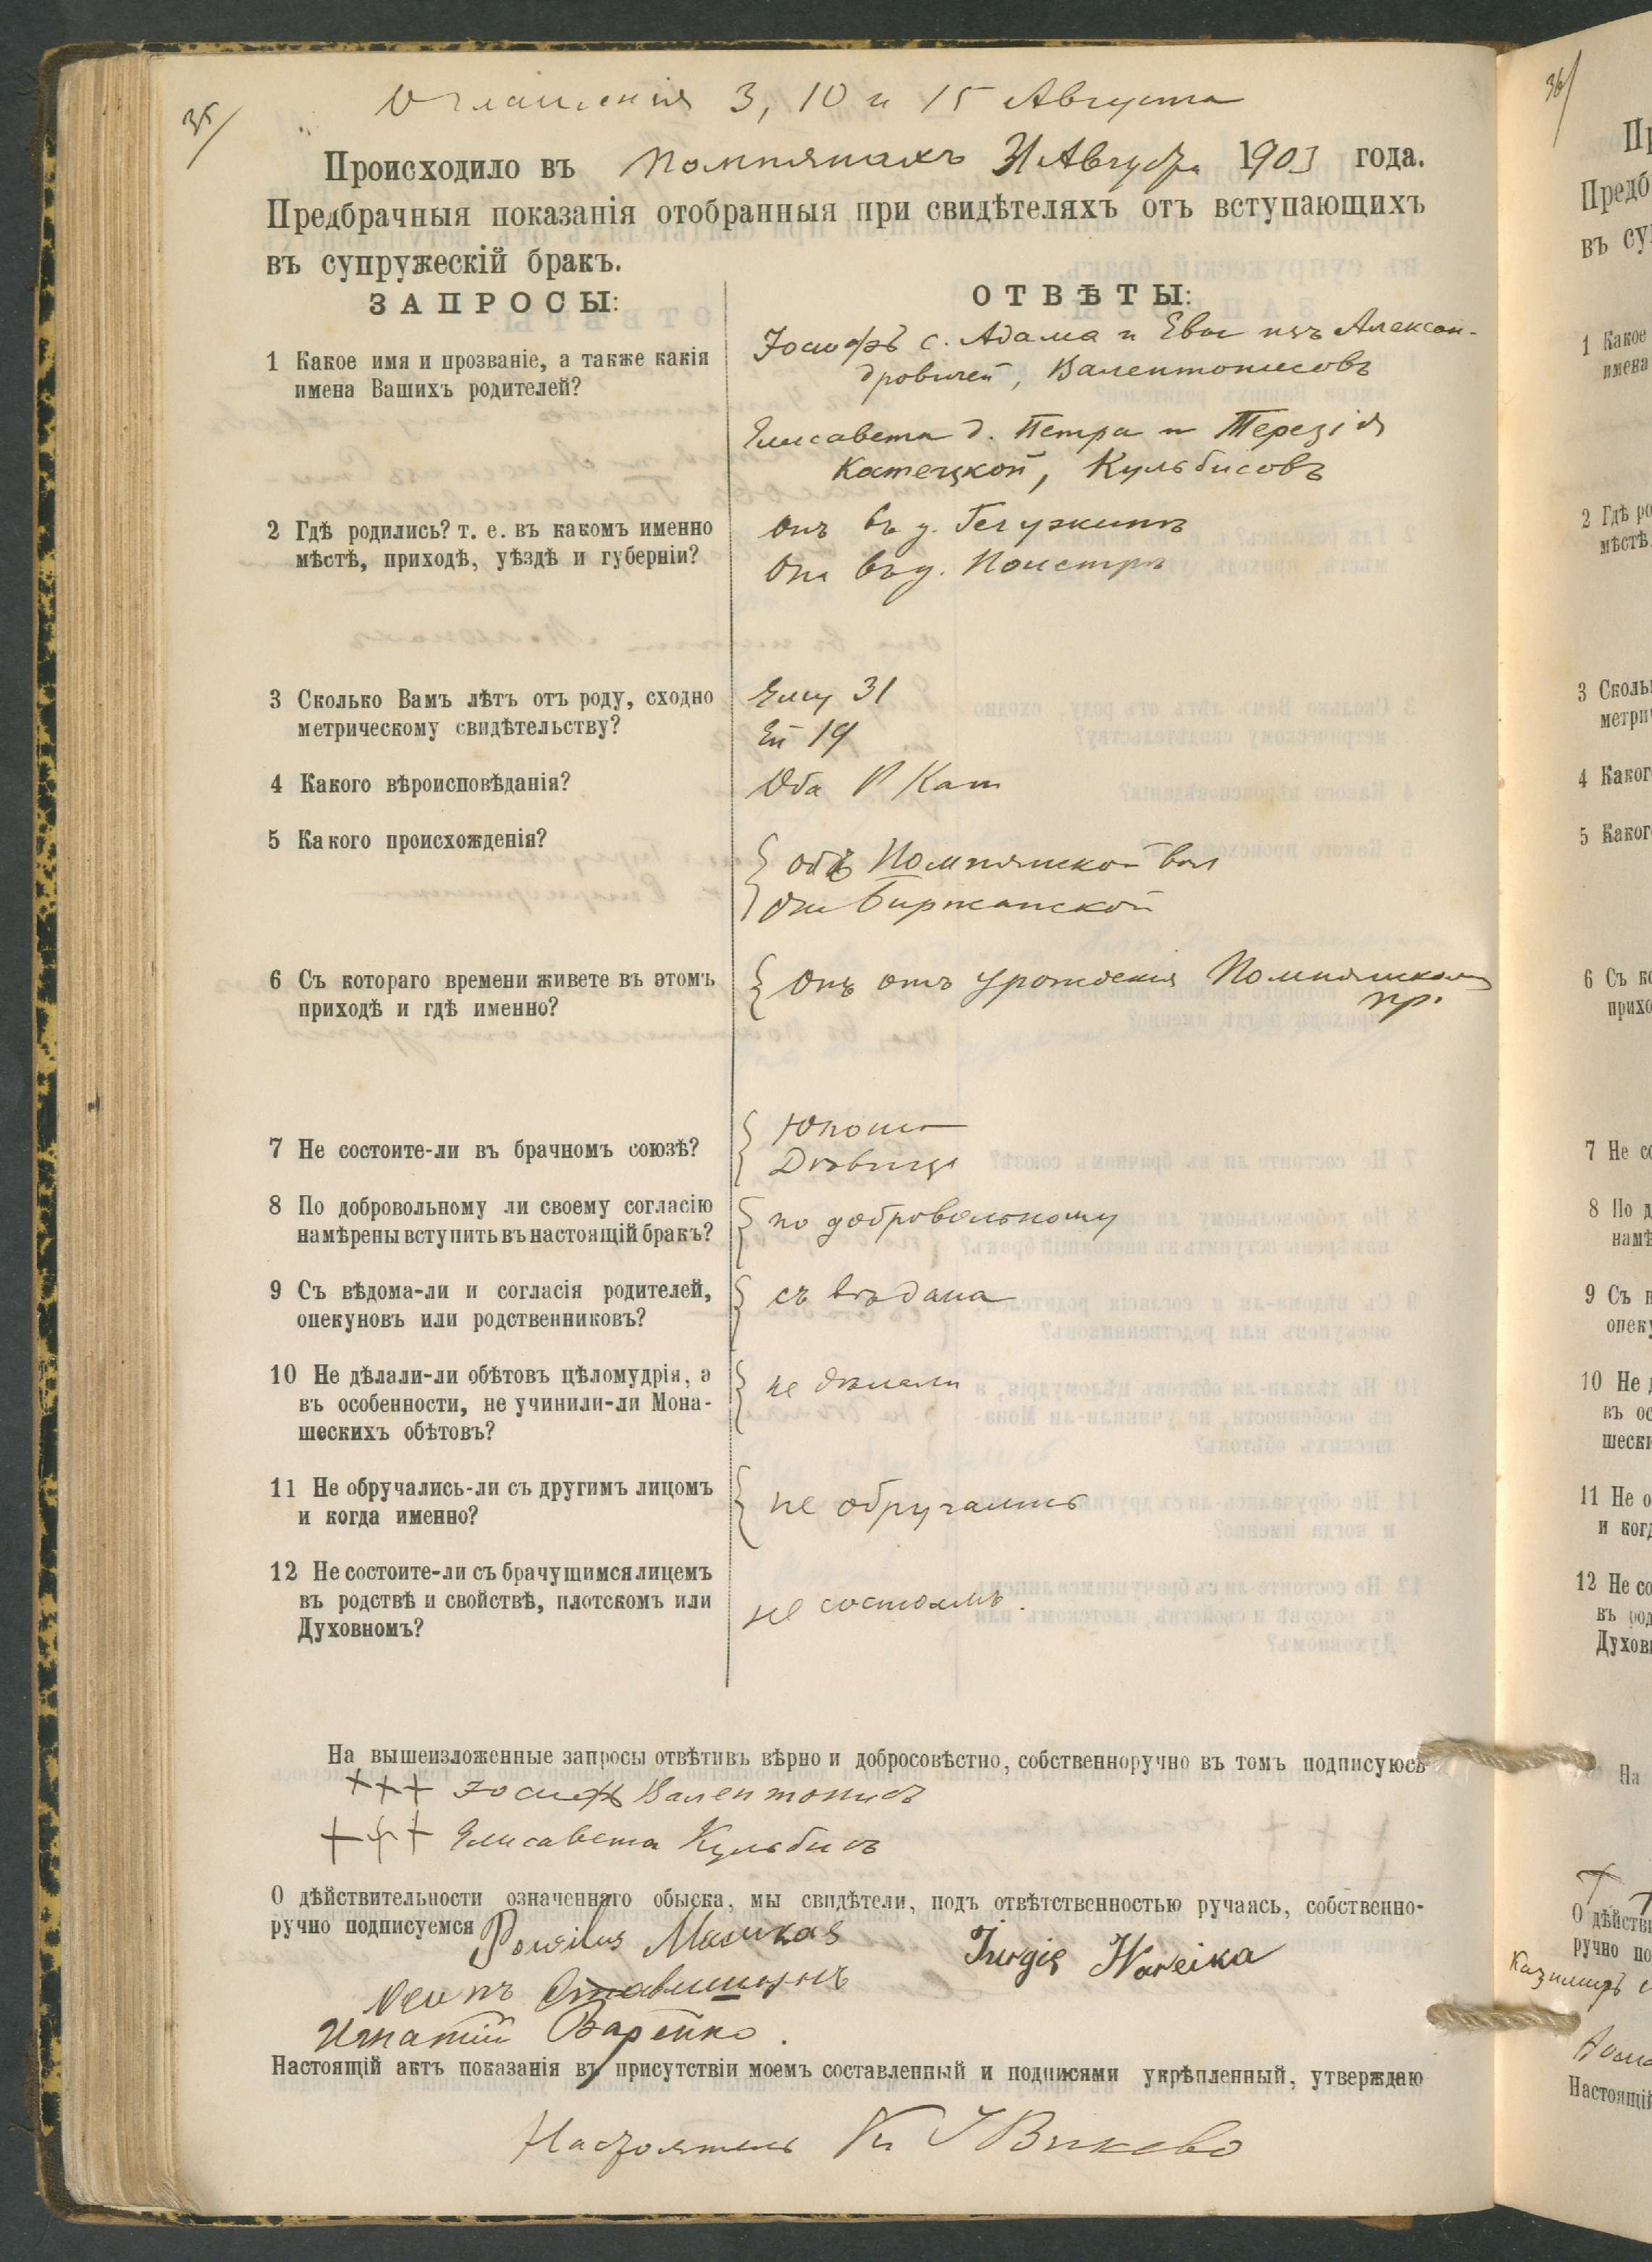 35/
Оглашенія 3, 10 и 15 Августа
Происходило въ Помпянахъ 31 Августа 1903 года.
Предбрачныя показанія отобранныя при свидѣтеляхъ отъ вступающихъ
въ супружескій бракъ.
ЗАПРОСЫ:
ОТВѢТЫ:
1 Какое имя и прозваніе, а также какія
имена Вашихъ родителей?
Іосифъ с. Адама и Евы изъ Алексан-
дровичей, Валентонисовъ
Елисавета д. Петра и Терезія
Катецкой, Кульбисовъ
2 Гдѣ родились? т. е. въ какомъ именно
мѣстѣ, приходѣ, уѣздѣ и губерніи?
Онъ въ д.
Она въ д.
3 Сколько Вамъ лѣтъ отъ роду, сходно
метрическому свидѣтельству?
Ему 31
Ей 19
4 Какого вѣроисповѣданія?
Оба Р Кат
5 Какого происхожденія?
Помпянской вол
Она Биржанской
6 Съ котораго времени живете въ этомъ
приходѣ и гдѣ именно?
Онъ отъ урожденія Помпянском
пр.
7 Не состоите-ли въ брачномъ союзѣ?
Юноша
Дѣвица
8 По добровольному ли своему согласію
намѣрены вступить въ настоящій бракъ?
по добровольному
9 Съ вѣдома-ли и согласія родителей,
опекуновъ или родственниковъ?
съ вѣдома
10 Не дѣлали-ли обѣтовъ цѣломудрія, а
въ особенности, не учинили-ли Мона-
шескихъ обѣтовъ?
не дѣлали
11 Не обручались-ли съ другимъ лицомъ
и когда именно?
не обручались
12 Не состоите-ли съ брачущимся лицемъ
въ родствѣ и свойствѣ, плотскомъ или
Духовномъ?
не состоимъ.
На вышеизложенные запросы отвѣтивъ вѣрно и добросовѣстно, собственноручно въ томъ подписуюсь
+++ Іосифъ Валентонисъ
+++ Елисавета Кульбисъ
О дѣйствительности означеннаго обыска, мы свидѣтели, подъ отвѣтственностью ручаясь, собственно-
ручно подписуемся
Jurgis Wareika
Игнатій Варейко.
Настоящій актъ показанія въ присутствіи моемъ составленный и подписями укрѣпленный, утверждаю
Настоятель Кс
36/